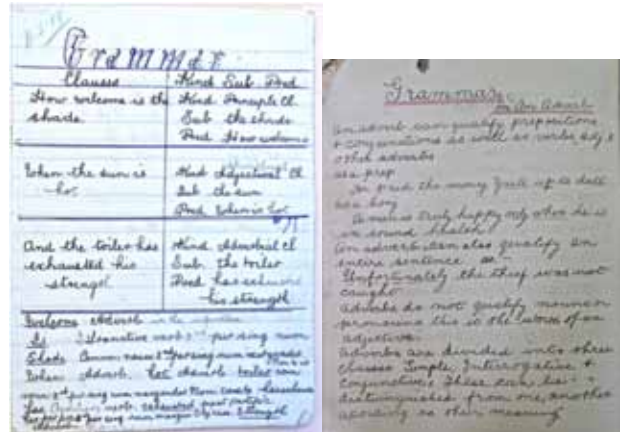 Grammar
Clauses
Kind Sub Pred
How welcome is the
shade.
Kind Principle Cl
Sub the shade
Pred How welcome
When the sun is
hot
Kind Adjectival Cl
Sub the sun
Pred when is hot
And the toiler has
exhausted his
strength
Kind Adverbial Cl
Sub. the toiler
Pred has exhausted
his strength
Welcome Adverb
Is verb 3rd per sing num
Shade Common noun 3rd per sing num
When Adverb. hot Adverb toiler com
noun 3rd per sing num
has verb. exhausted past
per sing num strength
Grammar
An Adverb
An adverb can qualify prepositions
& conjunctions as well as verbs, adj &
other adverbs
as a prep
I paid the money up to date
as a conj
A man is truly happy only when he is
in sound health
An adverb can also qualify an
entire sentence as
Unfortunately the thief was not
caught
Adverbs do not qualify nouns or
pronouns this is the work of an
adjective
Adverbs are divided into three
classes Simple, Interrogative &
Conjunctive. These can be
distinguished from one another
according to their meaning